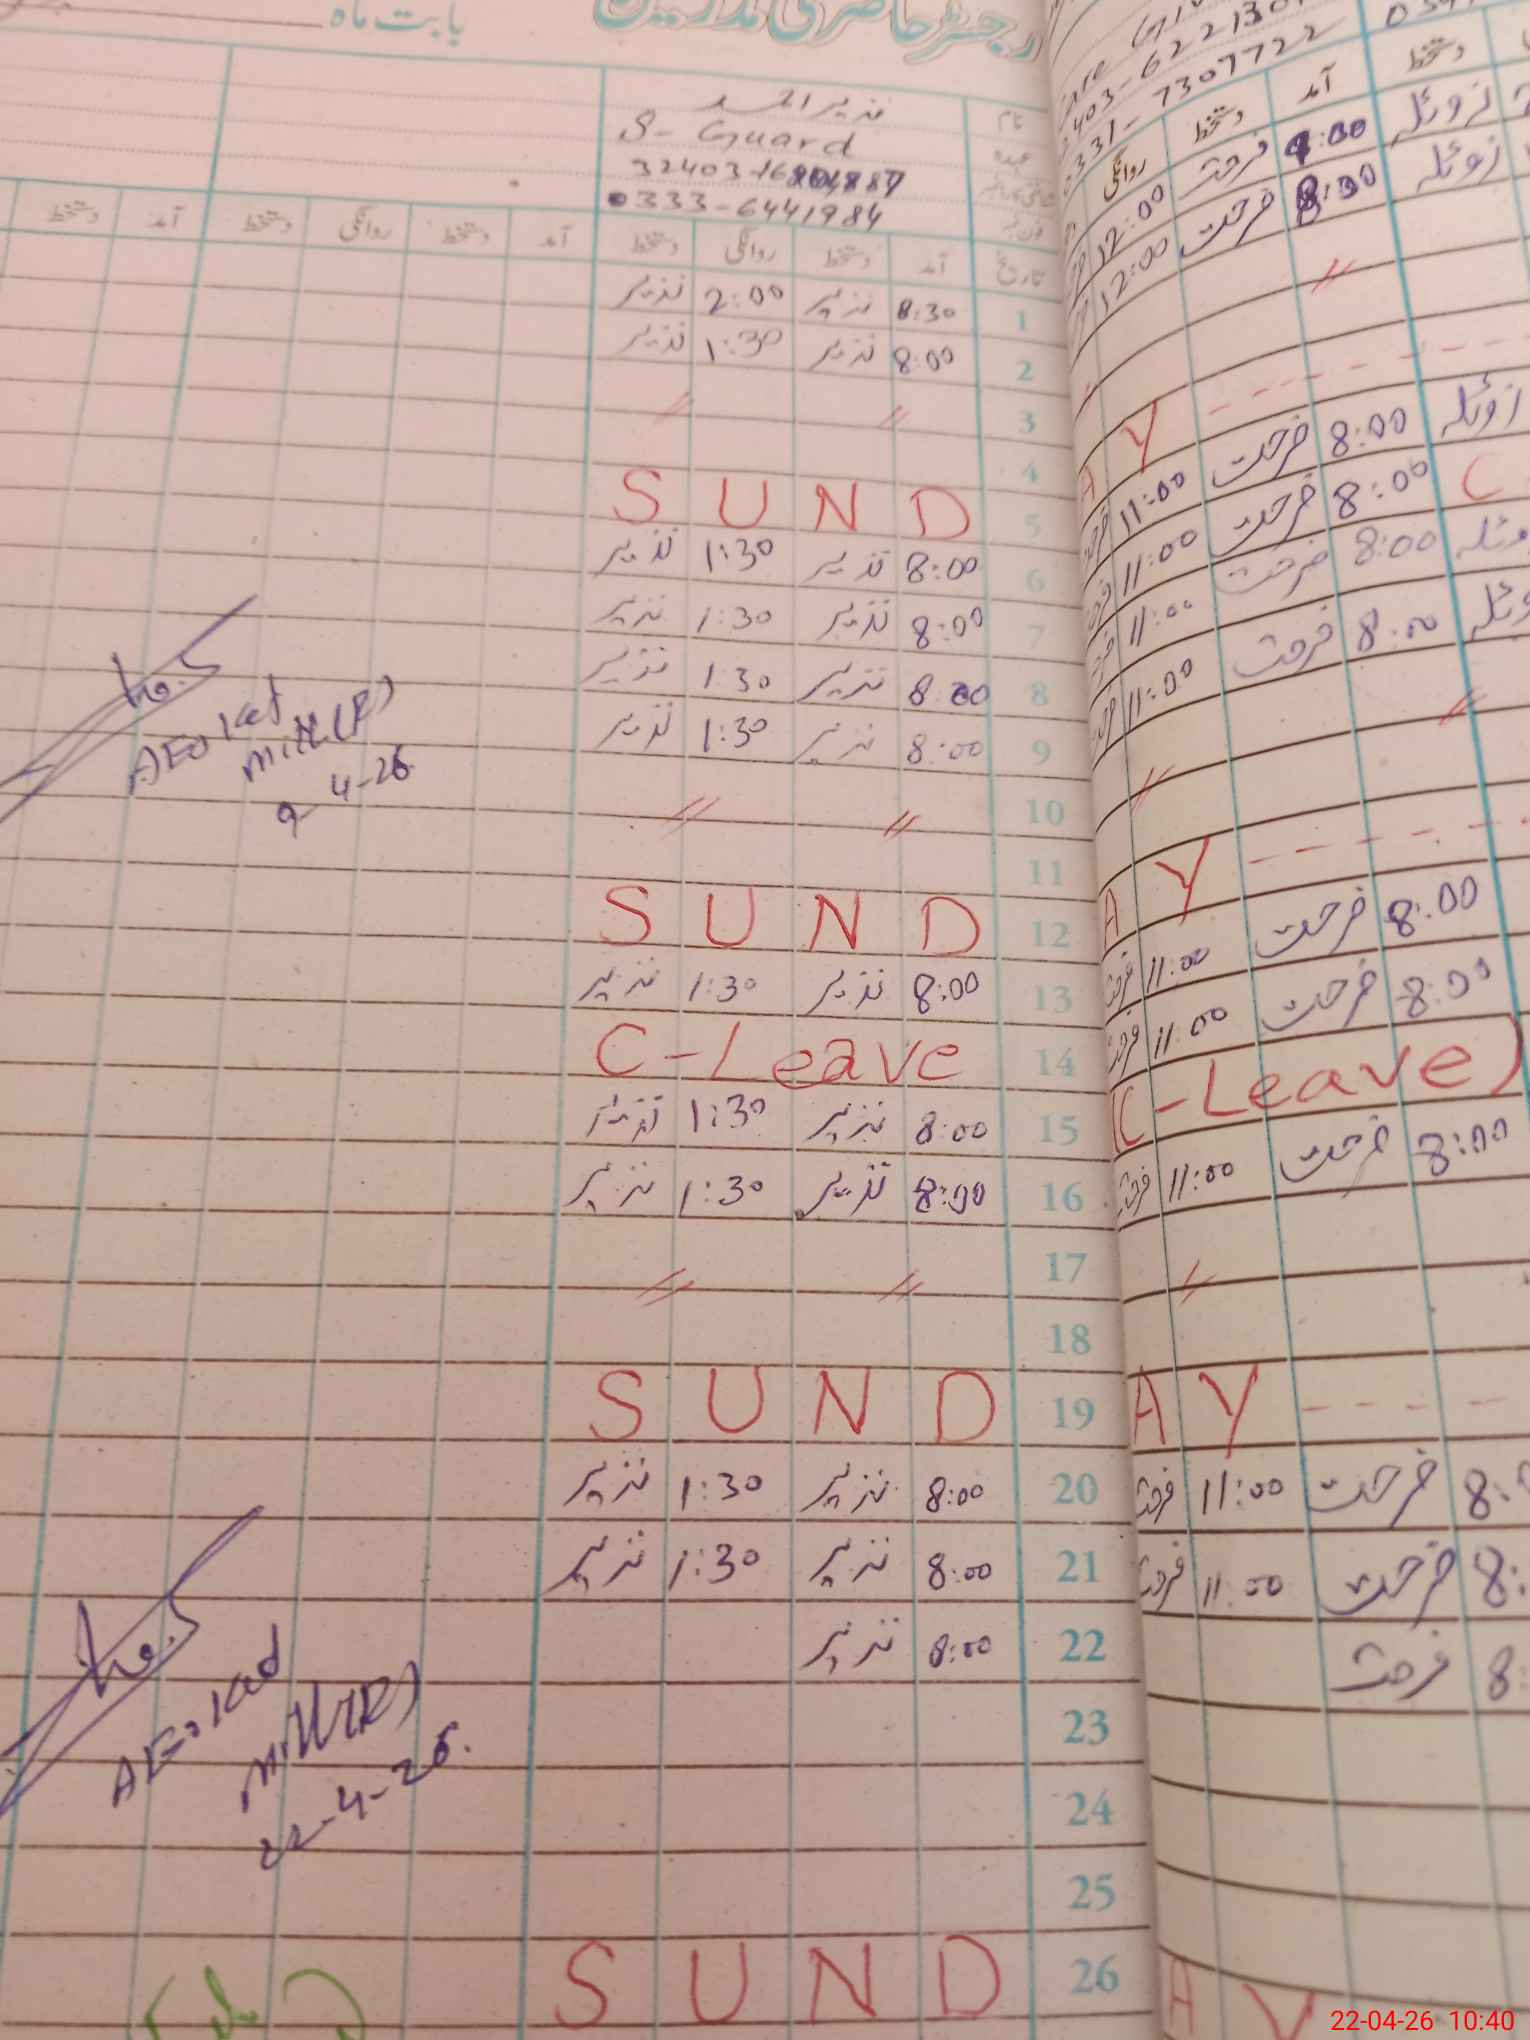 رجسٹر حاضری مدرسین
بابت ماہ
نام نذیر احمد
عہدہ S- Guard
32403-16
فون نمبر 0333-6441984
تاریخ آمد دستخط روانگی دستخط آمد دستخط روانگی دستخط آمد دستخط
1 8:30 نذیر 2:00 نذیر
2 8:00 نذیر 1:30 نذیر
3 // //
4
5 S U N D
6 8:00 نذیر 1:30 نذیر
7 8:00 نذیر 1:30 نذیر
8 8:00 نذیر 1:30 نذیر
9 8:00 نذیر 1:30 نذیر
10 // //
11
12 S U N D
13 8:00 نذیر 1:30 نذیر
14 C-Leave
15 8:00 نذیر 1:30 نذیر
16 8:00 نذیر 1:30 نذیر
17 // //
18
19 S U N D
20 8:00 نذیر 1:30 نذیر
21 8:00 نذیر 1:30 نذیر
22 8:00 نذیر
23
24
25
26 S U N D
AEO
9-4-26
AEO
22-4-26
7307722
روانگی دستخط آمد دستخط
12:00 فرحت
12:00 فرحت 8:30
//
A Y - - - -
11:00 فرحت 8:00
11:00 فرحت 8:00 C
11:00 فرحت 8:00
11:00 فرحت 8:00
// //
A Y - - - -
فرحت 11:00 فرحت 8:00
فرحت 11:00 فرحت 8:00
(C-Leave)
فرحت 11:00 فرحت 8:00
//
A Y - - - -
فرحت 11:00 فرحت
فرحت 11:00 فرحت
فرحت
A Y
22-04-26 10:40